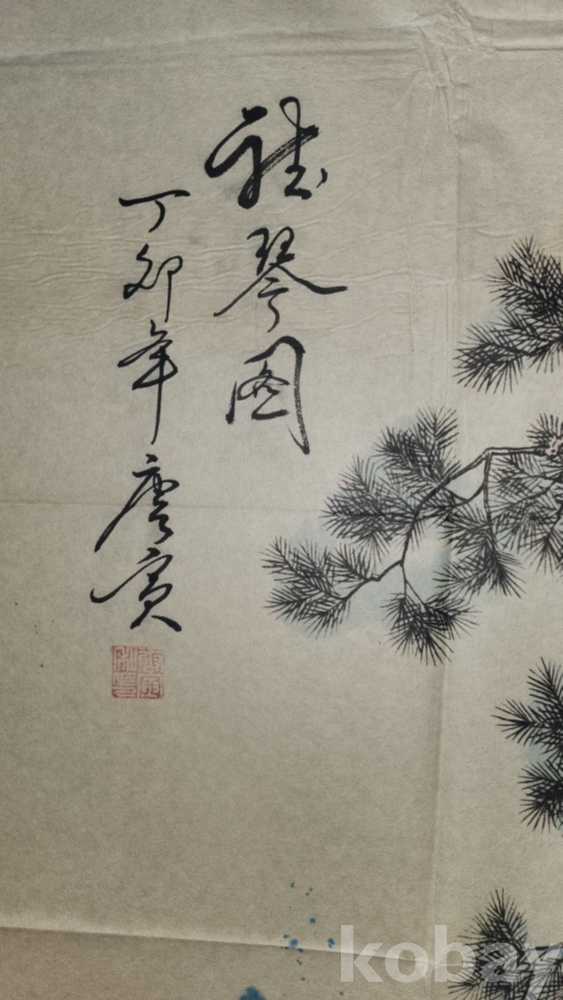 聽琴图
丁卯年唐寅
kobay